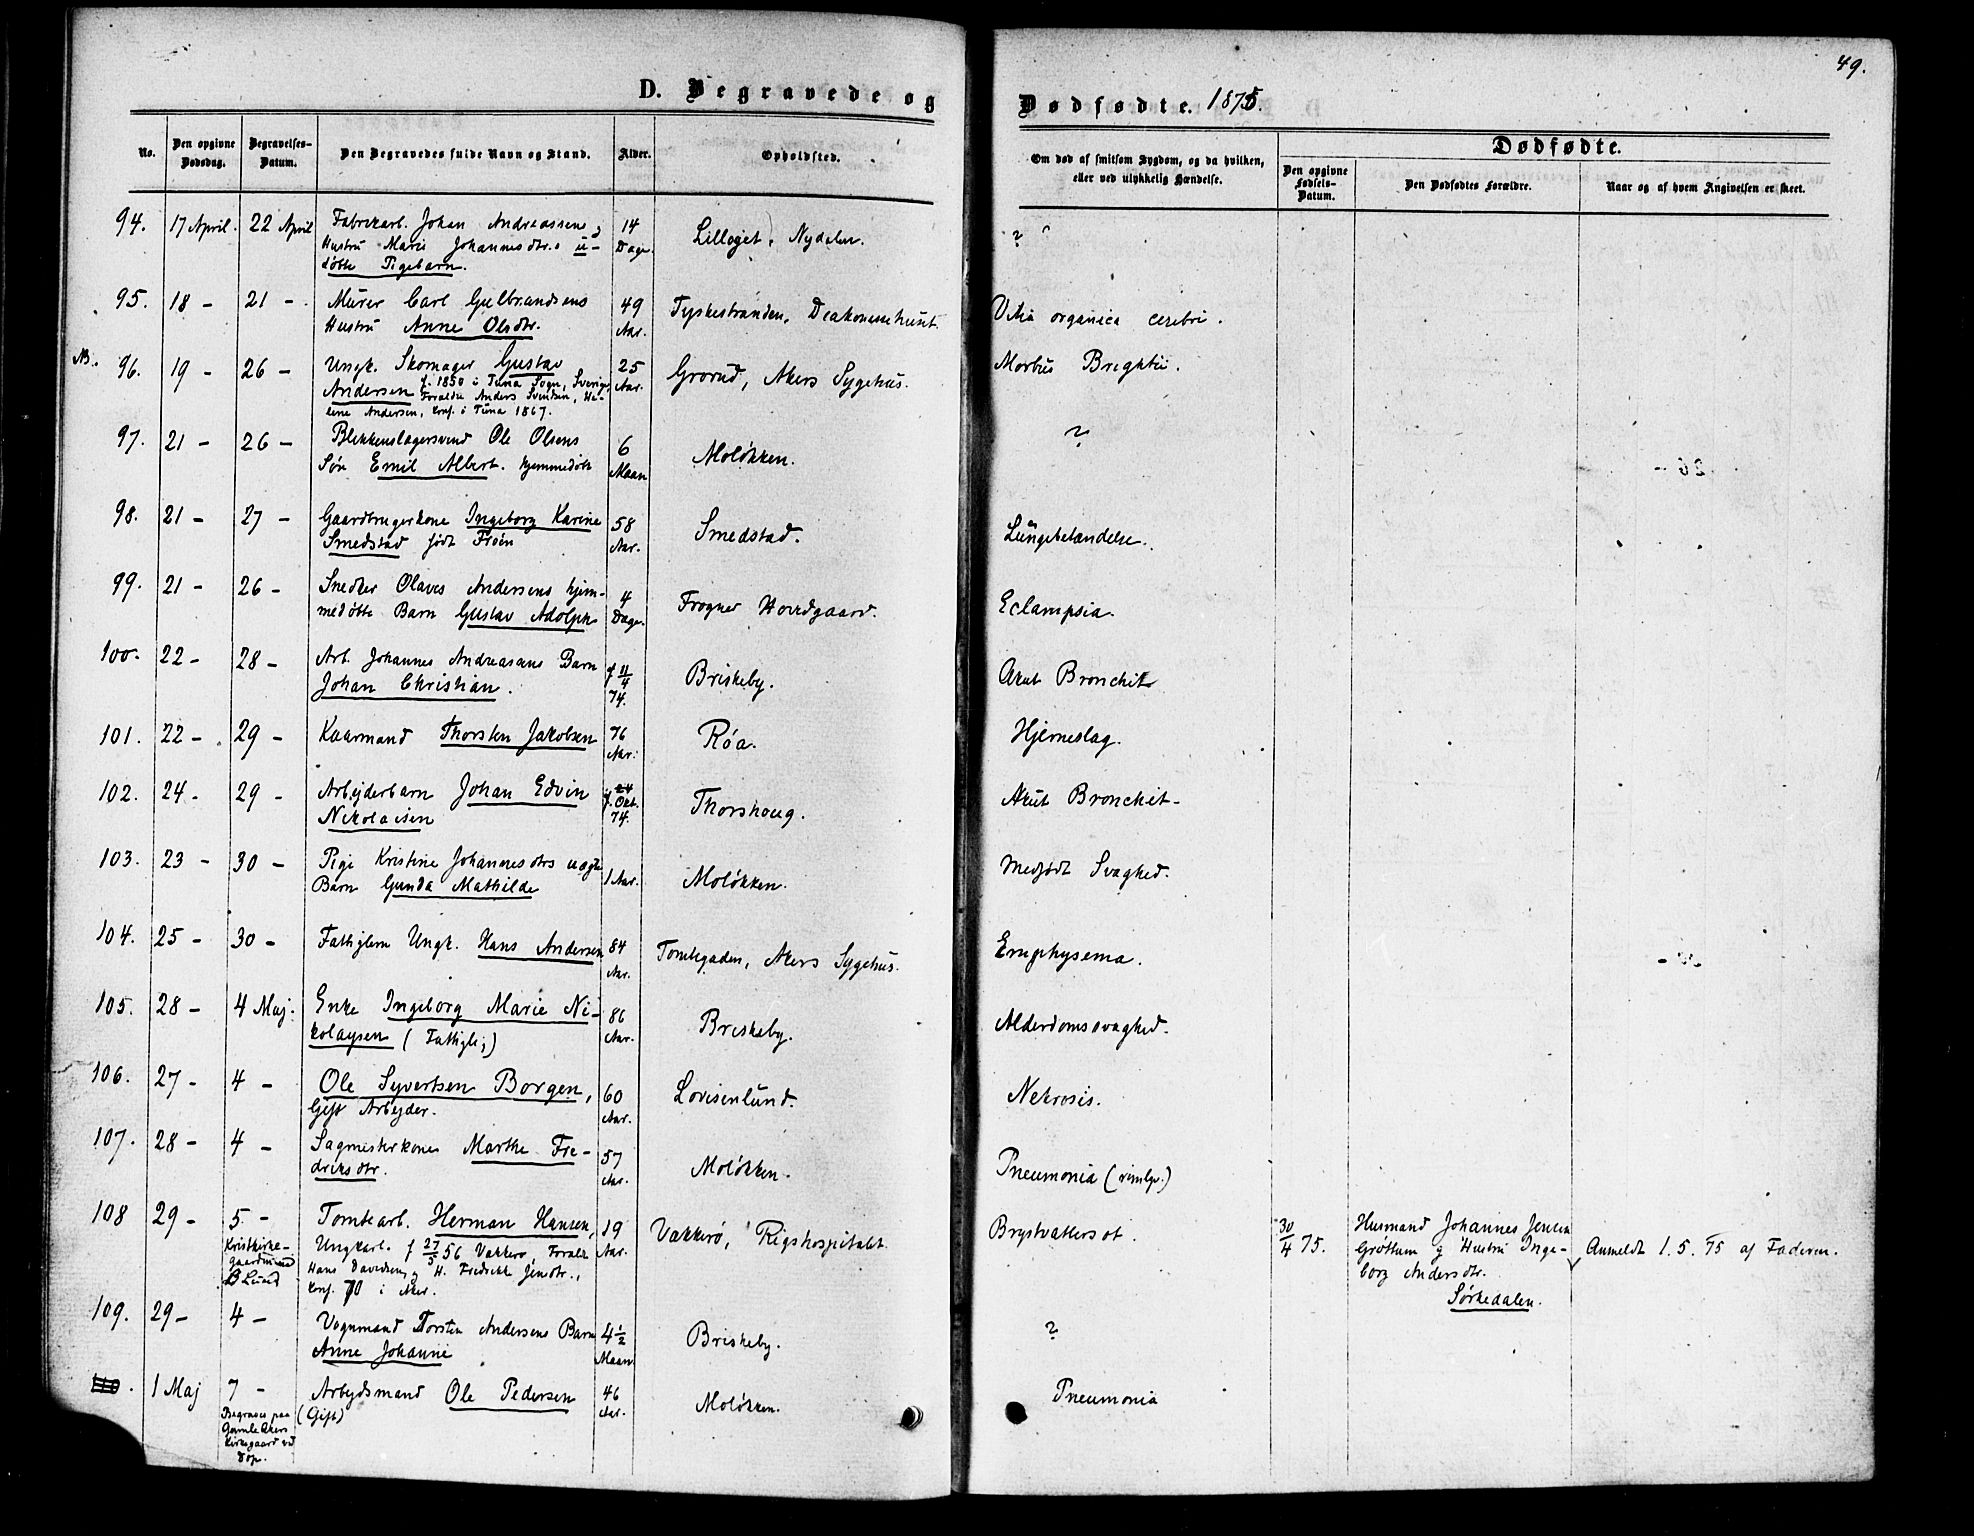 49.
D. Begravede og
Dødfødte. 1875.
No.
Den opgivne Dødsdag.
Begravelses-Datum.
Den Begravedes fulde Navn og Stand.
Alder.
Opholdsted.
Om død af smitsom Sygdom, og da hvilken,
eller ved ulykkelig Hændelse.
Dødfødte.
Den opgivne Fødsels-Datum.
Den Dødfødtes Forældre.
Naar og af hvem Angivelsen er skeet.
94. 17 April. 22 April Fabrikarb. Johan Andreassen 14 Lilloget, Nydalen. ?
Hustru Marie Johannesdtr. u- Dage.
døbte Pigebarn.
95. 18 - 21 - Murer Carl Gulbrandsens 49 Tyskestranden, Diakonissehuset. Vitia organica cerebri.
Hustru Anne Olsdtr. Aar.
NB. 96. 19 - 26 - Ungk. Skomager Gustav 25 Grorud, Akers Sygehus. Morbus Brightii.
Andersen f. 1850 i Tuna Sogn, Sverige, Aar.
Forældre Anders Svensen, He-
lene Andersen, konf. i Tuna 1867.
97. 21 - 26 - Blikkenslagersvend Ole Olsens 6 Moløkken. ?
Søn Emil Albert. hjemmedøbt Maan
98. 21 - 27 - Gaardbrugerkone Ingeborg Karine 58 Smedstad. Lungebetændelse.
Smedstad født Frøen Aar.
99. 21 - 26 - Snedker Olaves Andersens hjem- 4 Frogner Hovedgaard. Eclampsia.
medøbte Barn Gustav Adolph Dage.
100. 22 - 28 - Arb. Johannes Andreasens Barn f 11/4 Briskeby. Akut Bronchit
Johan Christian. 74.
101. 22 - 29 - Kaarmand Thorsten Jakobsen 76 Røa. Hjerneslag.
Aar.
102. 24 - 29 - Arbejderbarn Johan Edvin f. 24 Okt. Thorshoug. Akut Bronchit-
Nikolaisen 74.
103. 23 - 30 - Pige Kristine Johannesdtrs uægte 1 Aar. Moløkken. Medfødt Svaghed.
Barn Gunda Mathilde
104. 25 - 30 - Fattiglem Ungk. Hans Andersen 84 Tomtegaden, Akers Sygehus. Emphysema.
Aar.
105. 28 - 4 Maj. Enke Ingeborg Marie Ni- 86 Briskeby. Alderdomssvaghed.
kolaysen (Fattigl.) Aar.
106. 27 - 4 - Ole Syvertsen Borgen, 60 Lovisenlund. Nekrosis.
Gift Arbejder. Aar.
107. 28 - 4 - Sagmesterkone Marthe Fre- 57 Moløkken. Pneumonia
driksdtr. Aar.
108 29 - 5 - Tomtearb. Herman Hansen, 19 Vækkerø, Rigshospitalet Brystvattersot.
Kristkirke- Ungkarl. f 27/5 56 Vækkerø, Foræld. Aar.
gaarden Hans Davidsen, H. Fredrikke Jensdtr.,
Lund konf. 70 i Aker.
30/4 75. Husmand Johannes Jensen
Grøttum og Hustru Inge- Anmeldt 1. 5. 75 af Faderen.
borg Andersdtr.
Sørkedalen.
109. 29 - 4 - Vognmand Torsten Andersens Barn 4 1/2 Briskeby. ?
Anne Johanne Maan
110. 1 Maj 7 - Arbejdsmand Ole Pedersen 46 Moløkken. Pneumonia
Begraves paa (Gift) Aar.
Gamle Akers
Kirkegaard